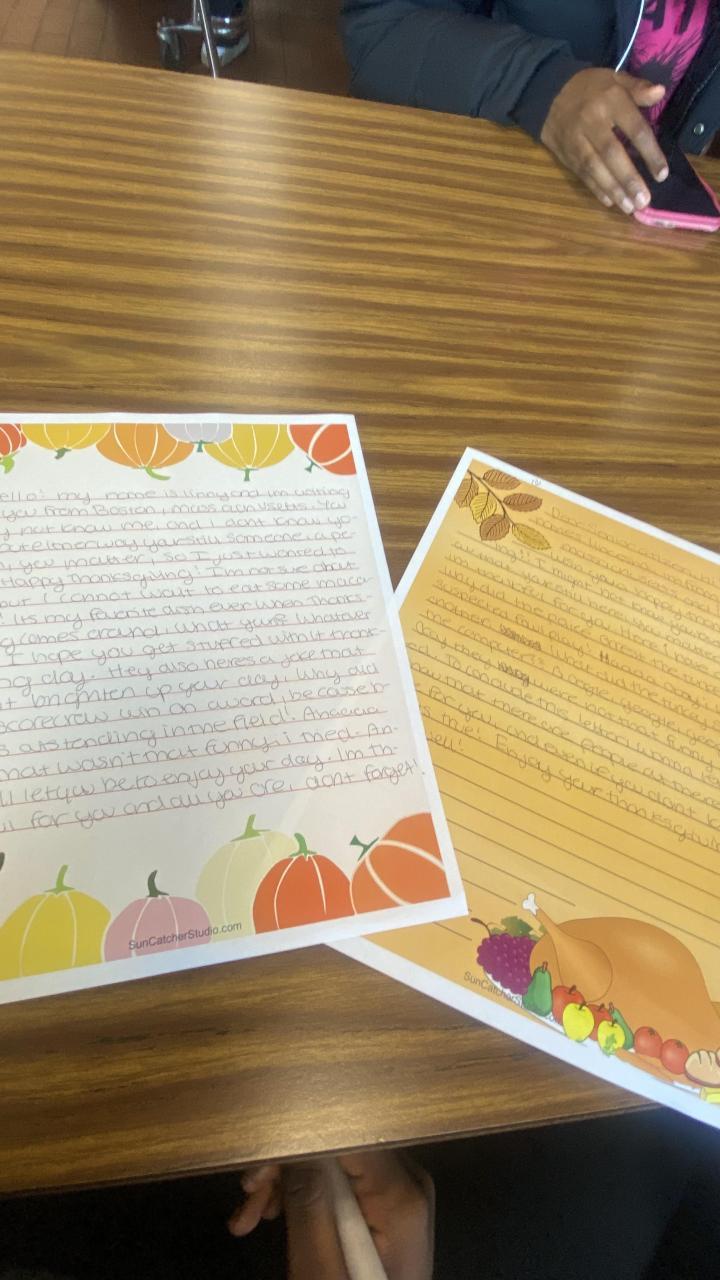 ello! my name is and im writing
you from Boston, massachusetts. You
y not know me, and i dont know yo-
either way your still someone, a per
you matter, so I just wanted to
Happy thanksgiving! I'm not sure about
but I cannot wait to eat some macc
its my favorite dish ever when thanks-
g comes around. what yurs whatever
I hope you get stuffed with it thank
ng day. Hey also heres a joke that
t brighten up your day. Why did
scarecrow win an award, because h
s outstending in the field!
hat wasn't that funny, i tried. An-
ll let you be to enjoy your day. Im th-
ul for you and all you are, dont forget!
SunCatcherStudio.com
wish you a happy than
ing! I might not know you
your still here
im thankful for you. Here I have
Why did the police arrest the turk
suspected foul play!
another What did the turkey
the computer? A google, google, go
day they were not that funny
ed. To conclude this letter I wanna le
now that there are people out there
for you, and even if you dont k
s me! Enjoy your thanksgivin
ell!
SunCatcherStudio